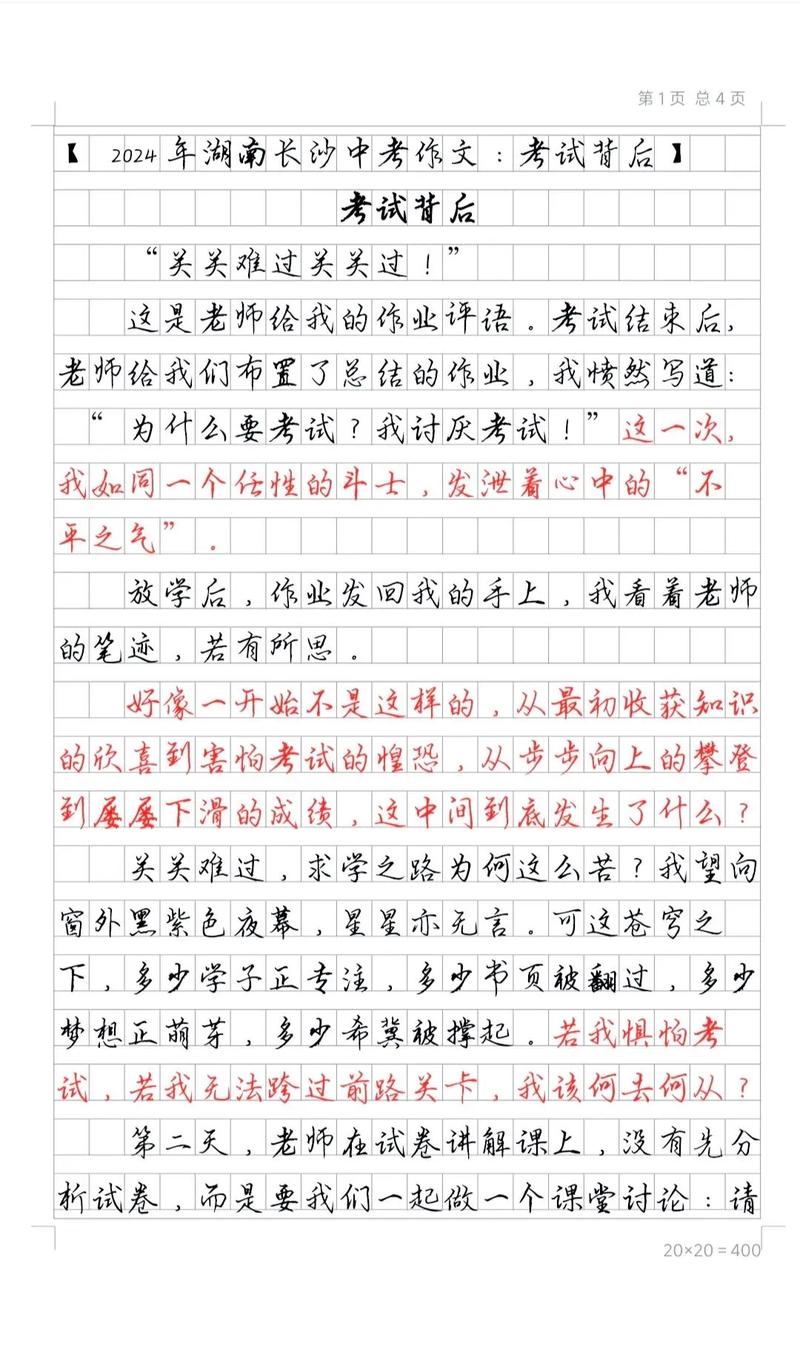 第1页 总4页
【 2024年湖南长沙中考作文：考试背后】
考试背后
“关关难过关关过！”
这是老师给我的作业评语。考试结束后，
老师给我们布置了总结的作业，我愤然写道：
“为什么要考试？我讨厌考试！”这一次，
我如同一个任性的斗士，发泄着心中的“不
平之气”。
放学后，作业发回我的手上，我看着老师
的笔迹，若有所思。
好像一开始不是这样的，从最初收获知识
的欣喜到害怕考试的惶恐，从步步向上的攀登
到屡屡下滑的成绩，这中间到底发生了什么？
关关难过，求学之路为何这么苦？我望向
窗外黑紫色夜幕，星星亦无言。可这苍穹之
下，多少学子正专注，多少书页被翻过，多少
梦想正萌芽，多少希冀被撑起。若我惧怕考
试，若我无法跨过前路关卡，我该何去何从？
第二天，老师在试卷讲解课上，没有先分
析试卷，而是要我们一起做一个课堂讨论：请
20×20=400